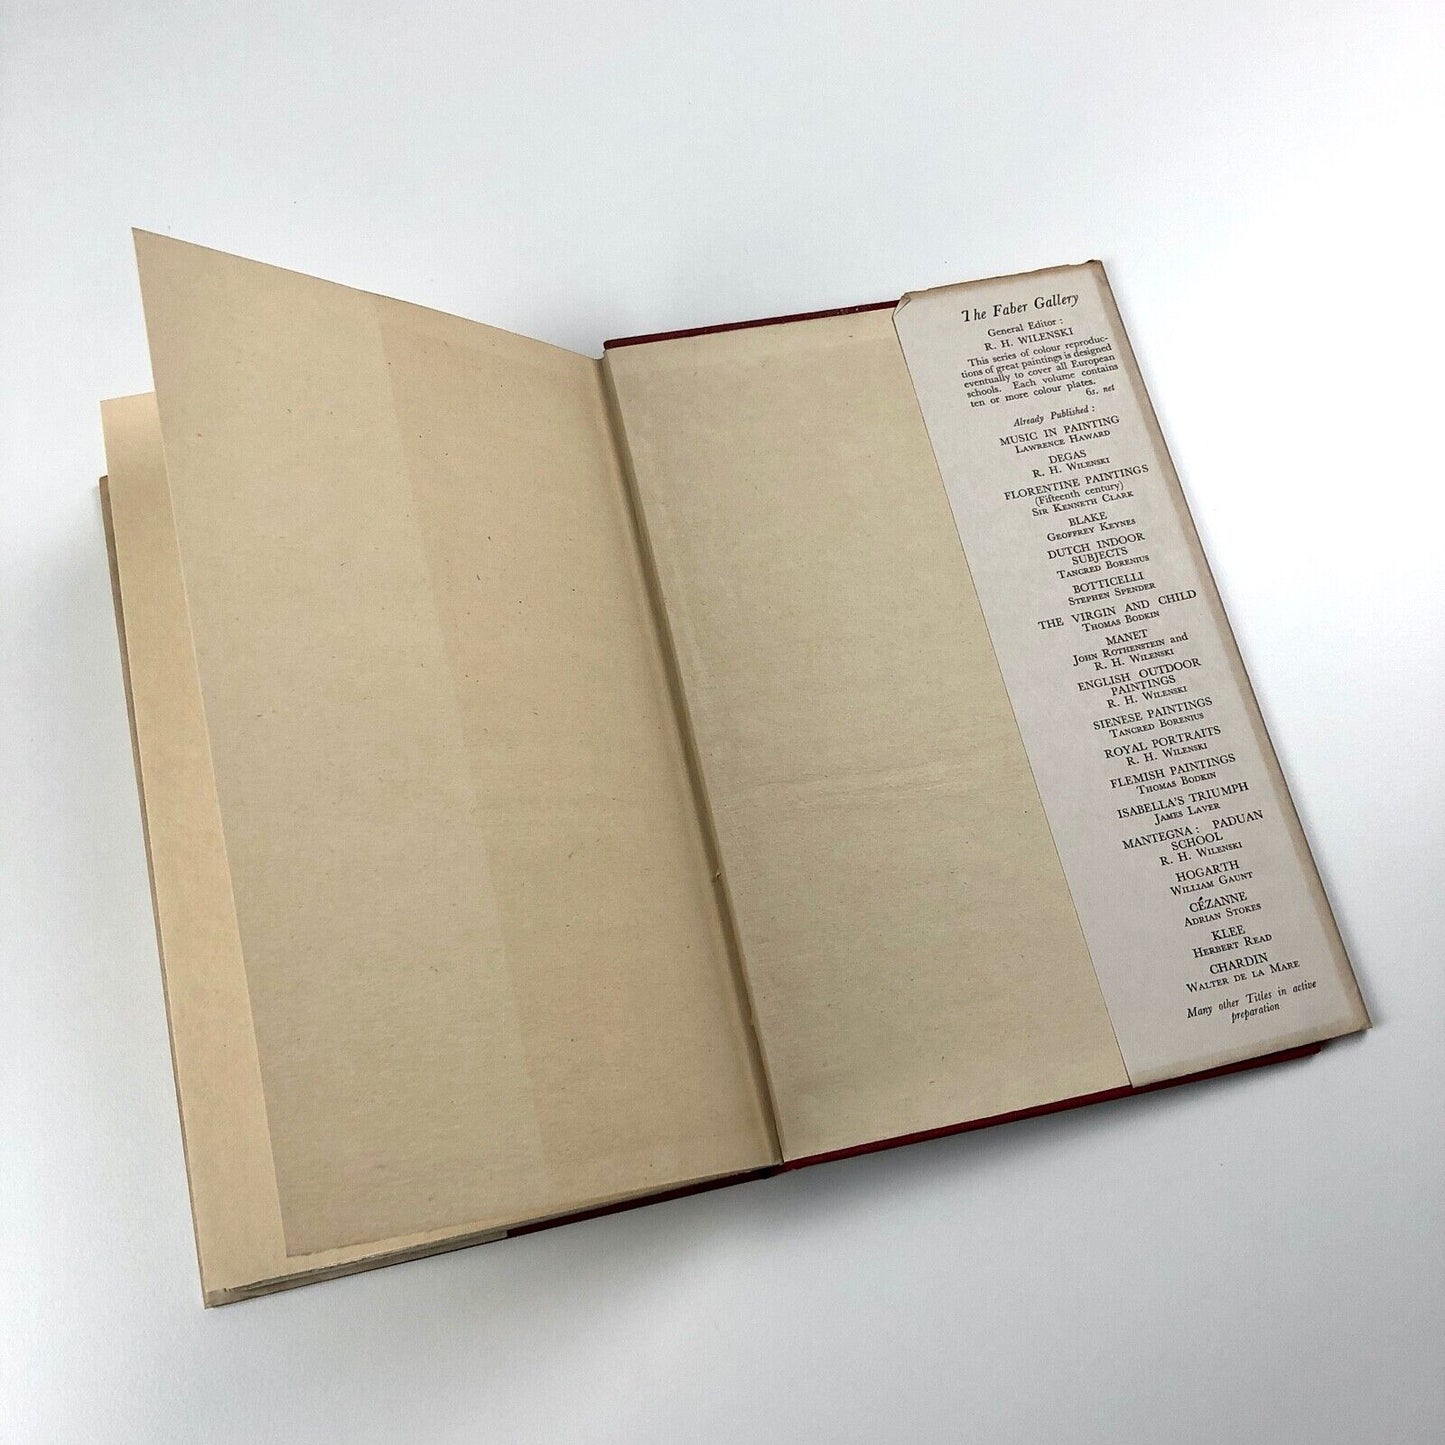 The Faber Gallery
General Editor :
R. H. WILENSKI
This series of colour reproduc-
tions of great paintings is designed
eventually to cover all European
schools. Each volume contains
ten or more colour plates.
6s. net
Already Published :
MUSIC IN PAINTING
LAWRENCE HAWARD
DEGAS
R. H. WILENSKI
FLORENTINE PAINTINGS
(Fifteenth century)
SIR KENNETH CLARK
BLAKE
GEOFFREY KEYNES
DUTCH INDOOR
SUBJECTS
TANCRED BORENIUS
BOTTICELLI
STEPHEN SPENDER
THE VIRGIN AND CHILD
THOMAS BODKIN
MANET
JOHN ROTHENSTEIN and
R. H. WILENSKI
ENGLISH OUTDOOR
PAINTINGS
R. H. WILENSKI
SIENESE PAINTINGS
TANCRED BORENIUS
ROYAL PORTRAITS
R. H. WILENSKI
FLEMISH PAINTINGS
THOMAS BODKIN
ISABELLA'S TRIUMPH
JAMES LAVER
MANTEGNA : PADUAN
SCHOOL
R. H. WILENSKI
HOGARTH
WILLIAM GAUNT
CÉZANNE
ADRIAN STOKES
KLEE
HERBERT READ
CHARDIN
WALTER DE LA MARE
Many other Titles in active
preparation